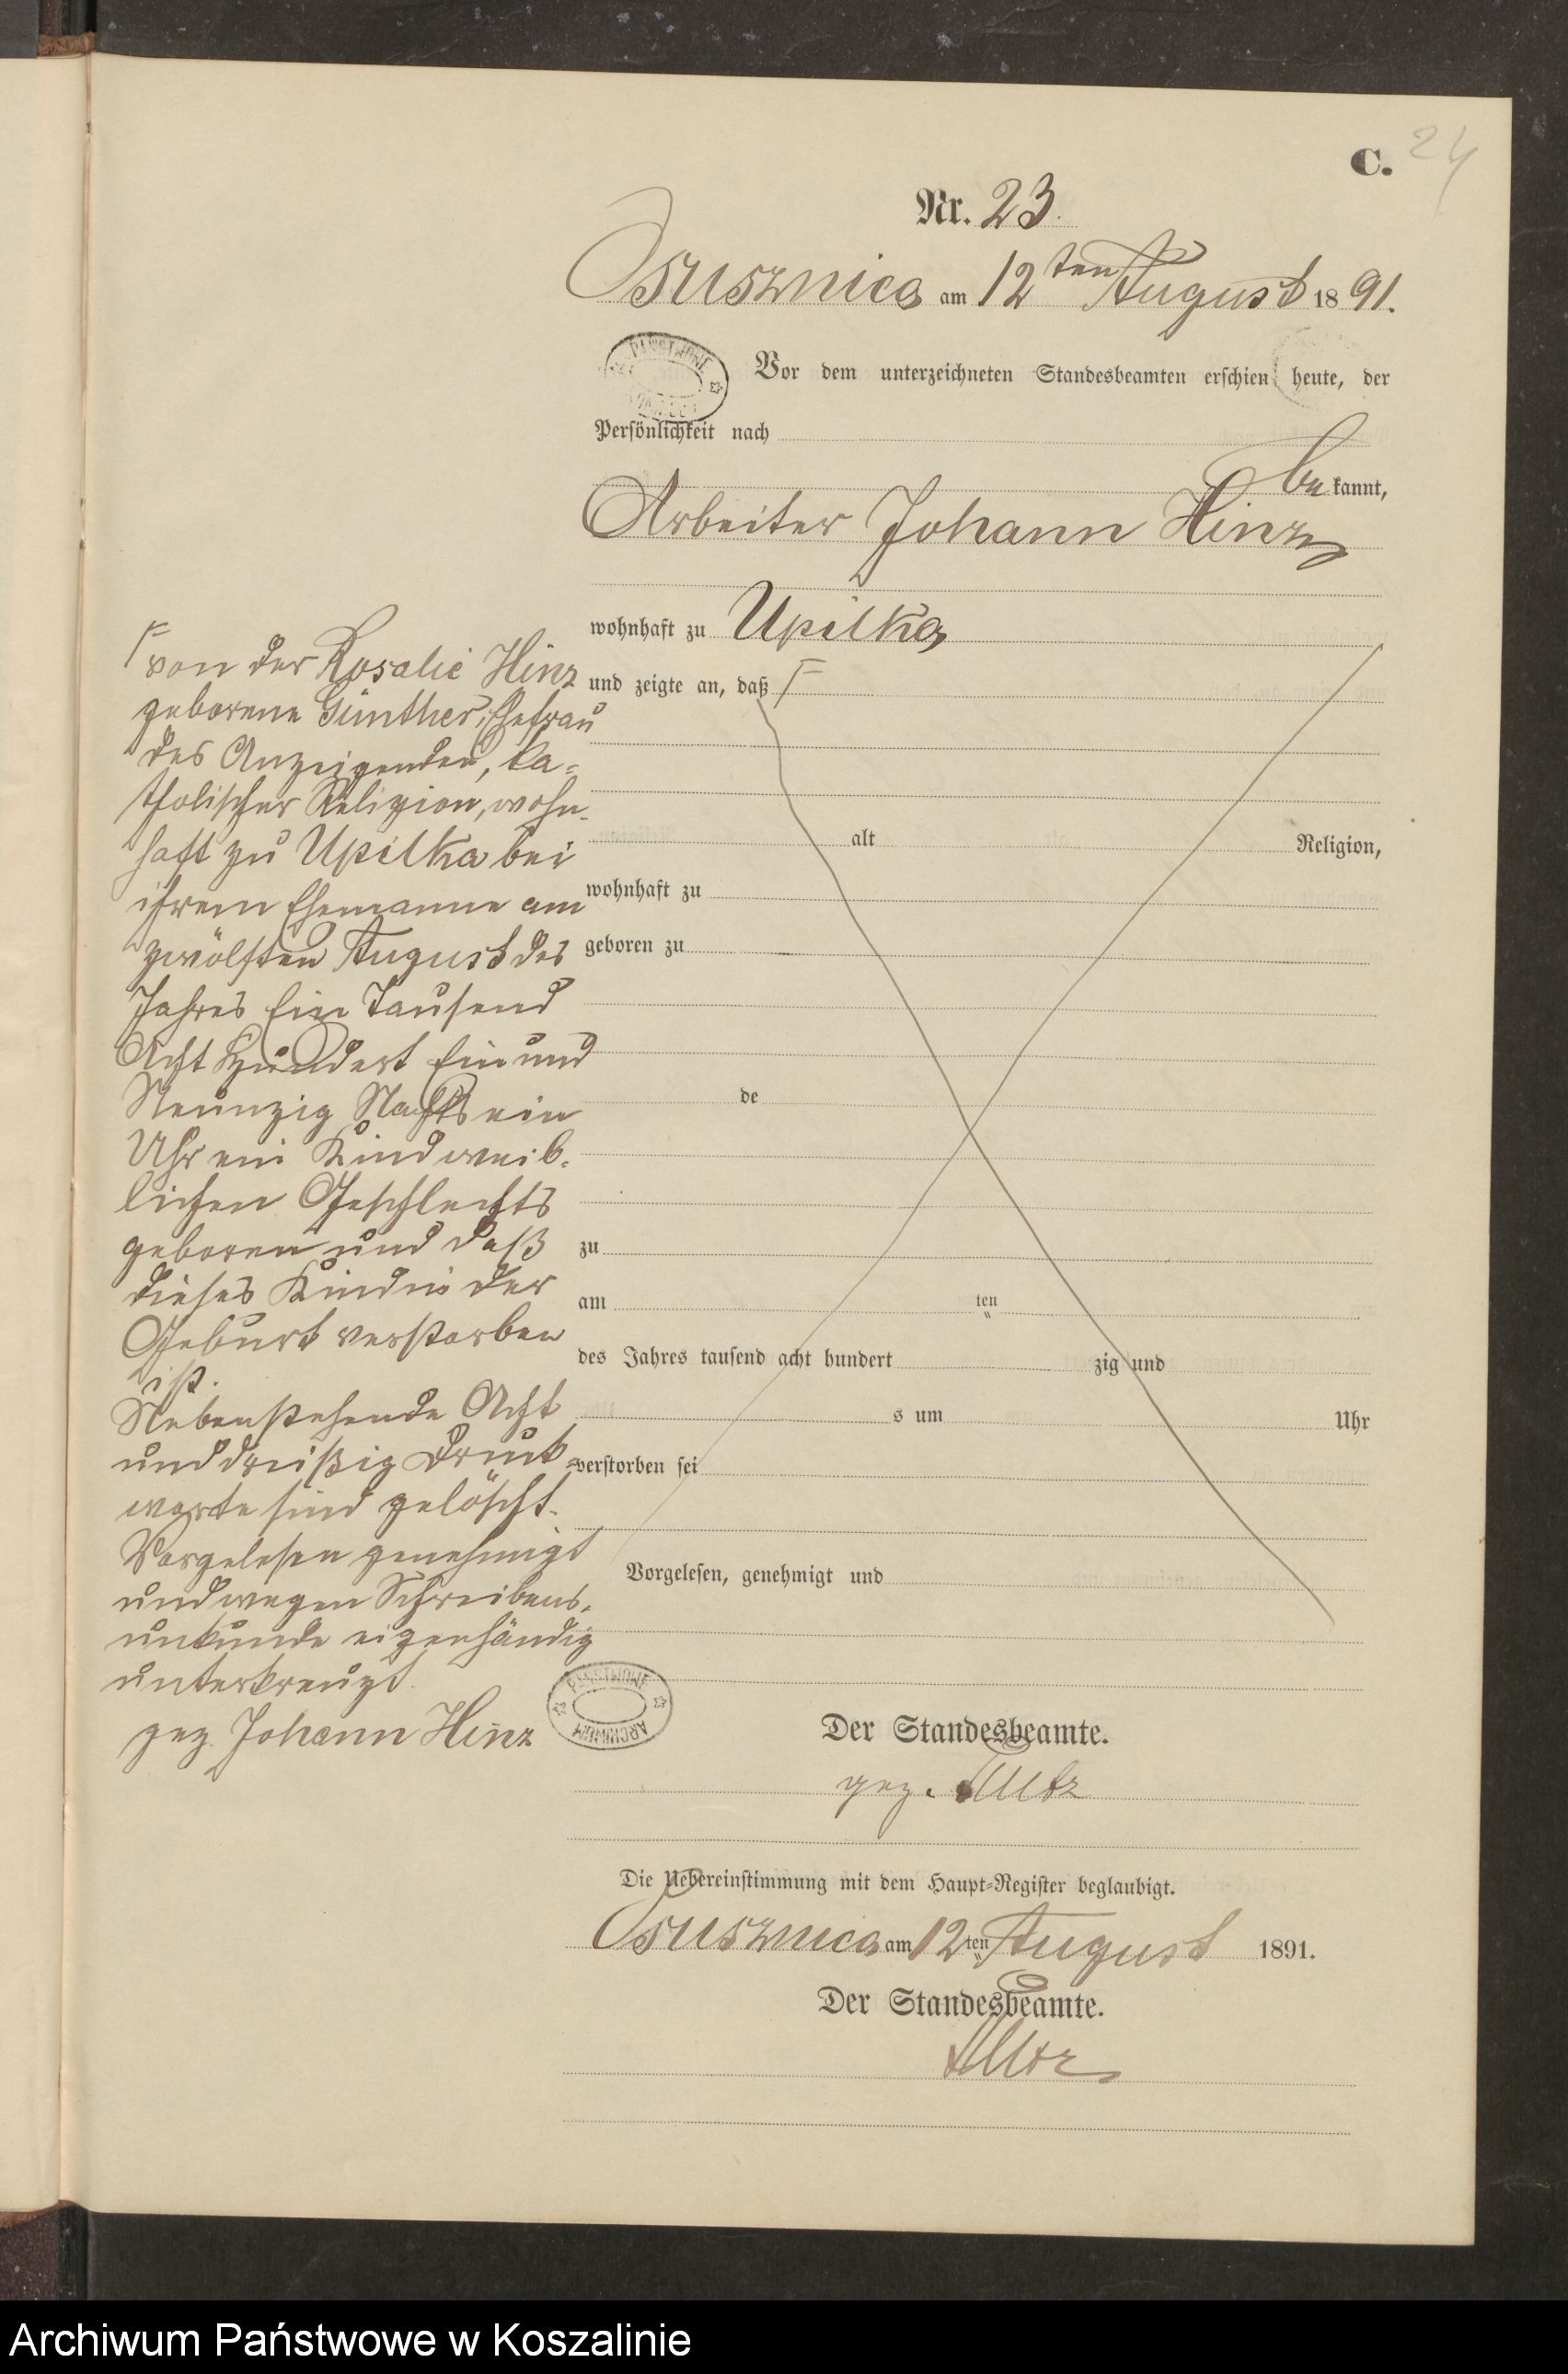 C. 24
Nr. 23.
Osusznica am 12ten August 1891.
Vor dem unterzeichneten Standesbeamten erschien heute, der
Persönlichkeit nach
bekannt,
Arbeiter Johann Hinz
wohnhaft zu Upilka
und zeigte an, daß Γ
alt Religion,
wohnhaft zu
geboren zu
de
zu
am ten
des Jahres tausend acht hundert zig und
s um Uhr
verstorben sei
Vorgelesen, genehmigt und
Γ von der Rosalie Hinz
geborene Günther, Ehefrau
des Anzeigenden, ka-
tholischer Religion, wohn-
haft zu Upilka bei
ihrem Ehemanne am
zwölften August des
Jahres Ein Tausend
Acht Hundert Ein und
Neunzig Nachts ein
Uhr ein Kind weib-
lichen Geschlechts
geboren und daß
dieses Kind in der
Geburt verstorben
ist.
Nebenstehende Acht
und dreißig Druck-
worte sind gelöscht.
Vorgelesen genehmigt
und wegen Schreibens-
unkunde eigenhändig
unterkreuzt.
gez. Johann Hinz
PAŃSTWOWE ARCHIWUM
Der Standesbeamte.
gez.
Die Uebereinstimmung mit dem Haupt-Register beglaubigt.
Osusznica am 12ten August 1891.
Der Standesbeamte.
Archiwum Państwowe w Koszalinie